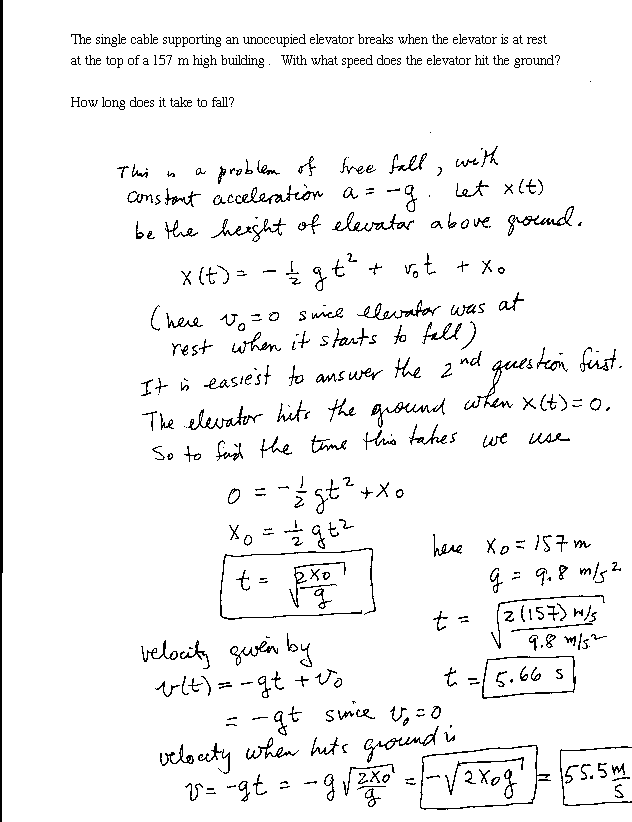 The single cable supporting an unoccupied elevator breaks when the elevator is at rest
at the top of a 157 m high building. With what speed does the elevator hit the ground?
How long does it take to fall?
This is a problem of free fall, with
constant acceleration a = -g. Let x(t)
be the height of elevator above ground.
x(t) = - 1/2 g t² + v₀t + x₀
(here v₀ = 0 since elevator was at
rest when it starts to fall)
It is easiest to answer the 2nd question first.
The elevator hits the ground when x(t) = 0.
So to find the time this takes we use
0 = - 1/2 gt² + x₀
x₀ = 1/2 gt²
t = √(2x₀/g)
here x₀ = 157 m
g = 9.8 m/s²
t = √(2(157) m/s / 9.8 m/s²)
t = 5.66 s
velocity given by
v(t) = -gt + v₀
= -gt since v₀ = 0
velocity when hits ground is
v = -gt = -g √(2x₀/g) = -√(2x₀g) = 55.5 m/s